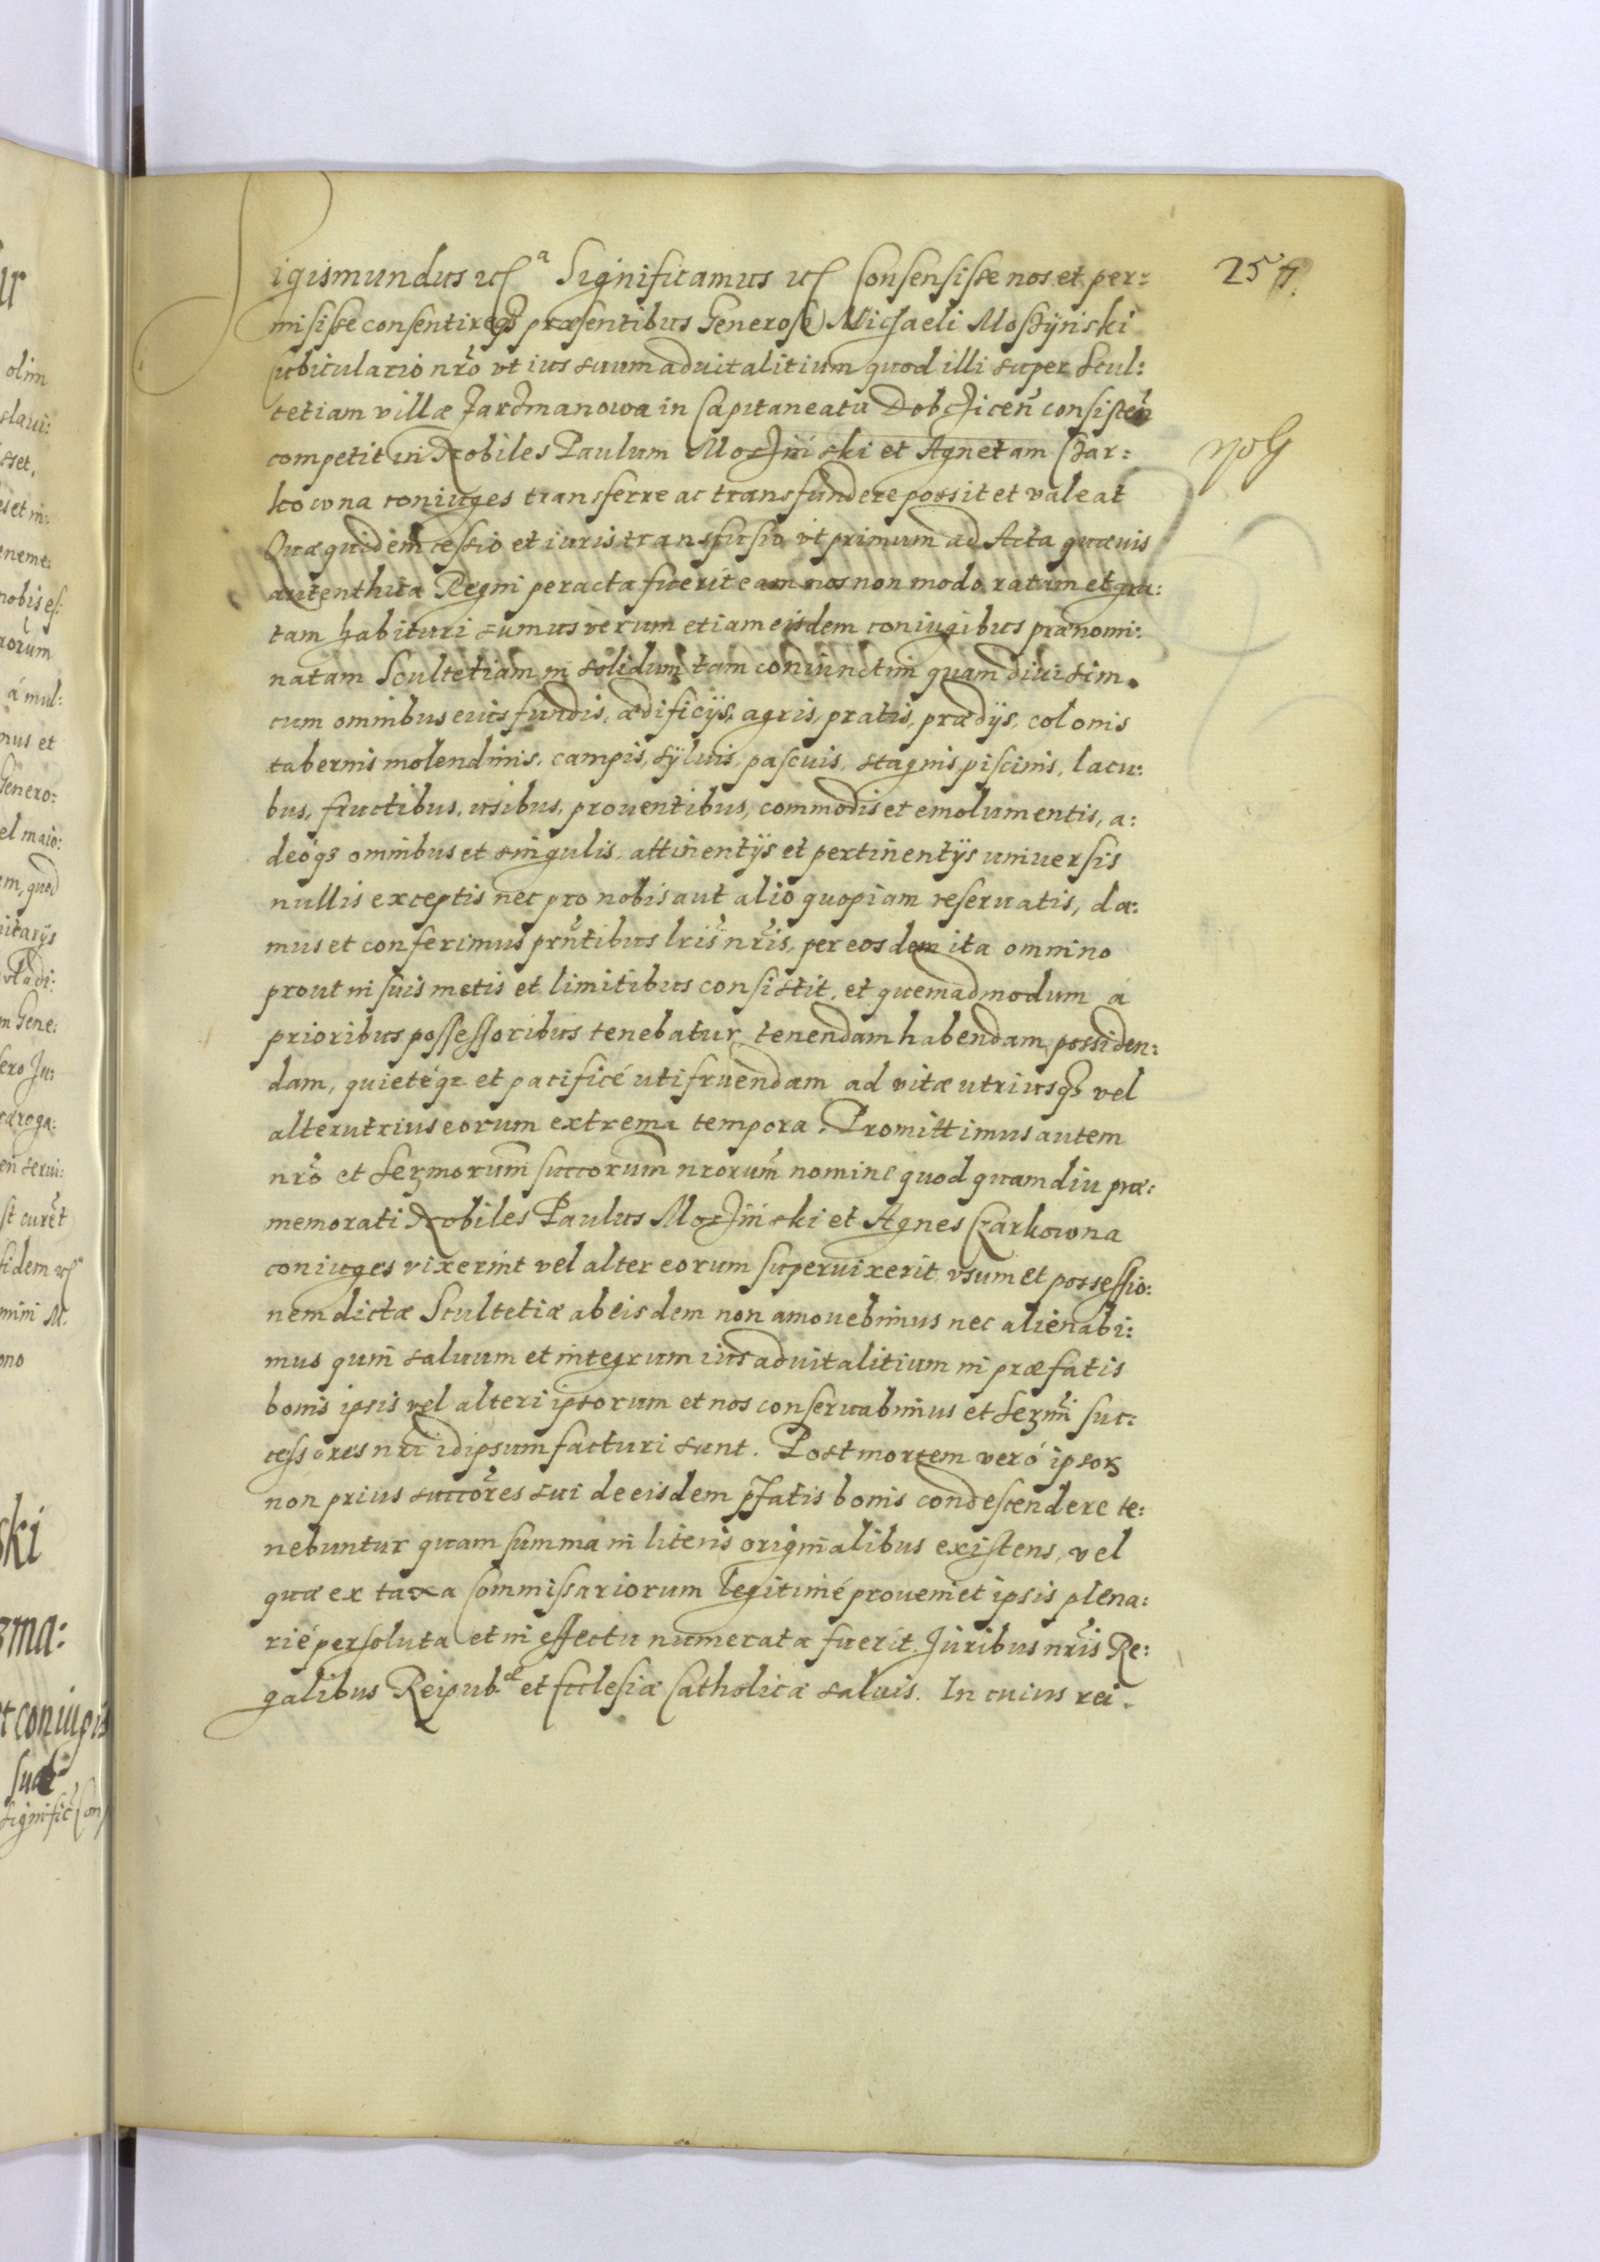 Sigismundus etca Significamus etc Consensisse nos et per:
misisse consentireq3 præsentibus Generoso Michaeli Moszÿnski
Cubiculario nr̃o vt ius suum aduitalitium quod illi super Scul:
tetiam villæ Jarzmanowa in Capitaneatu Dobczicen̄ consisten̄
competit in Nobiles Paulum Moszinski et Agnetam Czar:
kowna coniuges transferre ac transfundere possit et valeat
Quæquidem cessio et iuris transfusio vt primum ad Acta quævis
autenthica Regni peracta fuerit eam nos non modo ratam et gra:
tam habituri sumus verum etiam eisdem coniugibus prænomi:
natam Scultetiam in solidum tam coniunctim quam diuisim.
cum omnibus euis fundis, ædificÿs, agris, pratis, prædÿs, colonis
tabernis molendinis, campis, sÿluis, pascuis, stagnis, piscinis, lacu:
bus, fructibus, usibus, prouentibus, commodis et emolumentis, a:
deóq3 omnibus et singulis, attinentÿs et pertinentÿs uniuersis
nullis exceptis nec pro nobis aut alio quopiam reseruatis, da:
mus et conferimus prñtibus lris̄ nr̃is, per eosdem ita omnino
prout in suis metis et limitibus consistit, et quemadmodum á
prioribus possessoribus tenebatur, tenendam habendam possiden:
dam, quietéq3 et pacificé uti fruendam ad vitæ utriusq3 vel
alterutrius eorum extrema tempora. Promittimus autem
nr̃o et Sermorum̄ succorum̄ nrorum̄ nomine quod quamdiu præ:
memorati Nobiles Paulus Moszinski et Agnes Czarkowna
coniuges vixerint vel alter eorum superuixerit, vsum et possessio:
nem dictæ Scultetiæ ab eisdem non amouebimus nec alienabi:
mus quin saluum et integrum ius aduitalitium in præfatis
bonis ipsis vel alteri ipsorum et nos conseruabimus et Sermi suc:
cessores nr̃i idipsum facturi sunt. Post mortem veró ipsor3
non prius succōres sui de eisdem p̃fatis bonis condescendere te:
nebuntur quam summa in literis originalibus existens, vel
quæ ex taxa Commissariorum legitimé proueniet ipsis plena:
rié persoluta et in effectu numerata fuerit. Juribus nr̃is Re:
galibus Reipub.æ et Ecclesiæ Catholicæ saluis. In cuius rei.
olim
slaui:
sset,
eneme:
nobis es:
rorum
á mul:
nus et
Genero:
el maio:
em, quod
itarÿs
m Gene:
ero Ju:
en serui:
st curet
fidem etca
mini M.
ono
ski
zma:
et coniugis
suæ